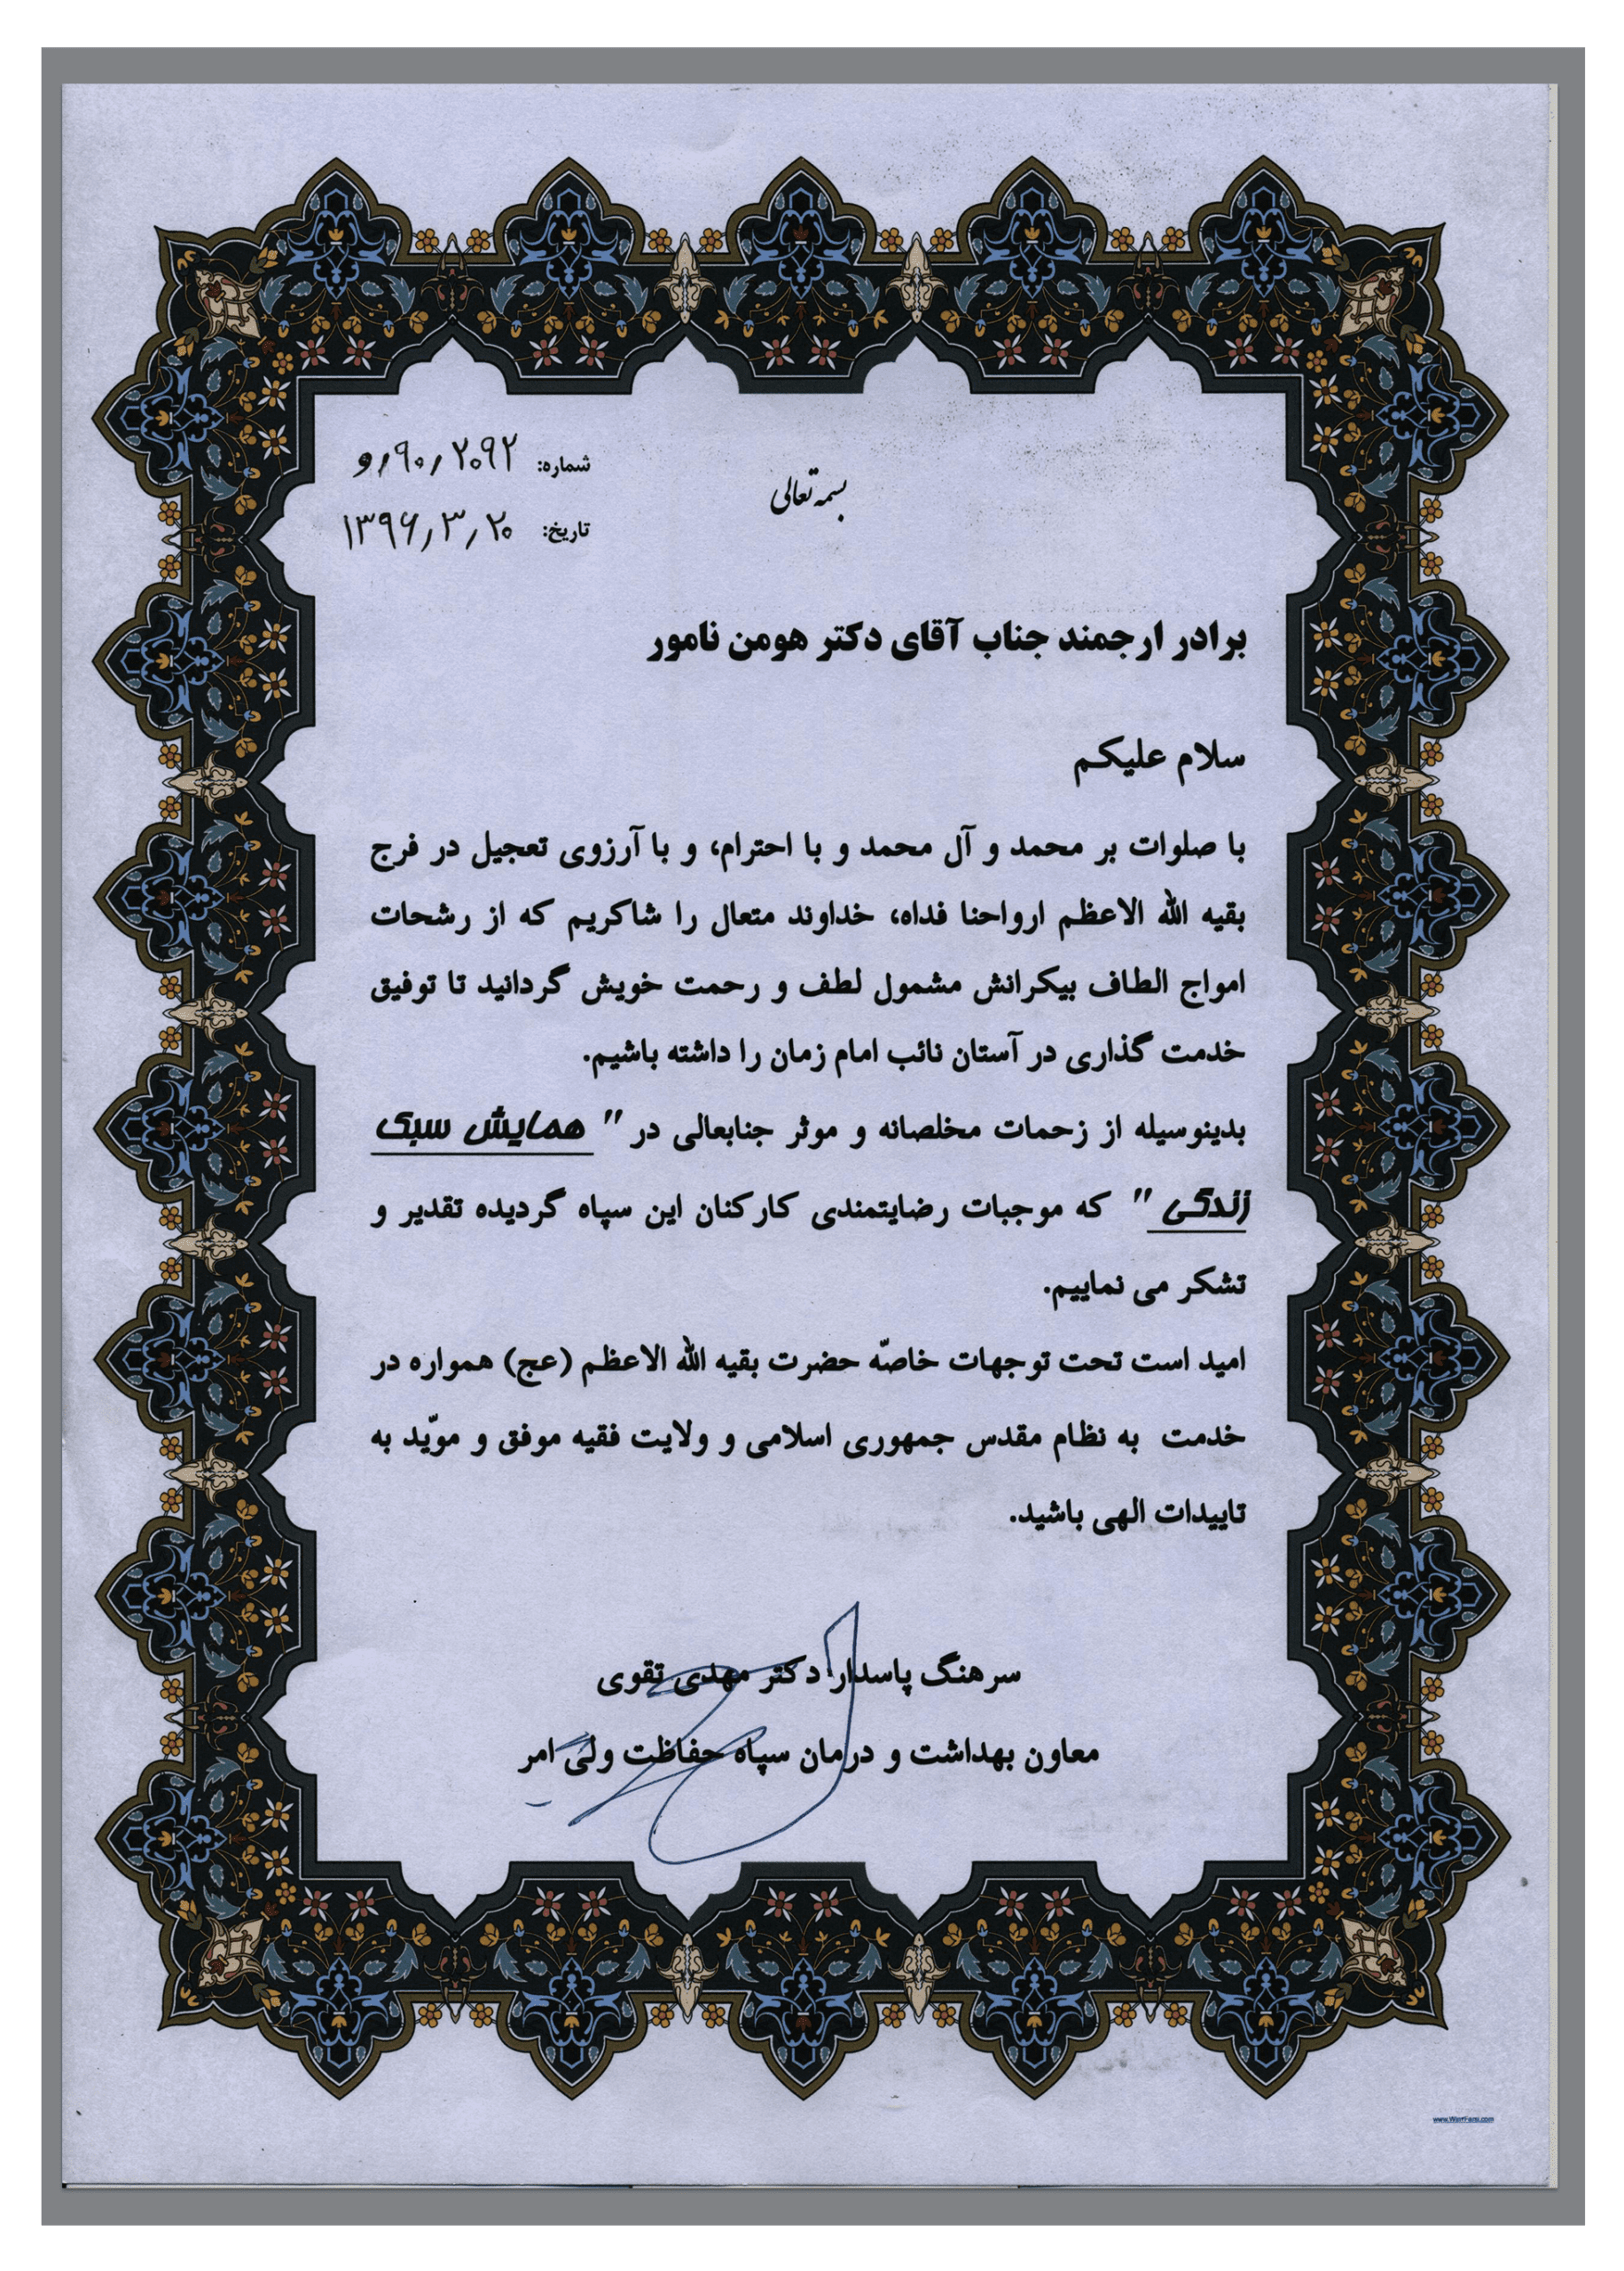 بسمه تعالی
شماره: ۲۰۹۲؍۹۰؍و
تاریخ: ۱۳۹۶؍۳؍۲۰
برادر ارجمند جناب آقای دکتر هومن نامور
سلام علیکم
با صلوات بر محمد و آل محمد و با احترام، و با آرزوی تعجیل در فرج
بقیه الله الاعظم ارواحنا فداه، خداوند متعال را شاکریم که از رشحات
امواج الطاف بیکرانش مشمول لطف و رحمت خویش گردانید تا توفیق
خدمت گذاری در آستان نائب امام زمان را داشته باشیم.
بدینوسیله از زحمات مخلصانه و موثر جنابعالی در " همایش سبک
زندگی " که موجبات رضایتمندی کارکنان این سپاه گردیده تقدیر و
تشکر می نماییم.
امید است تحت توجهات خاصّه حضرت بقیه الله الاعظم (عج) همواره در
خدمت به نظام مقدس جمهوری اسلامی و ولایت فقیه موفق و موّید به
تاییدات الهی باشید.
سرهنگ پاسدار دکتر مهدی تقوی
معاون بهداشت و درمان سپاه حفاظت ولی امر